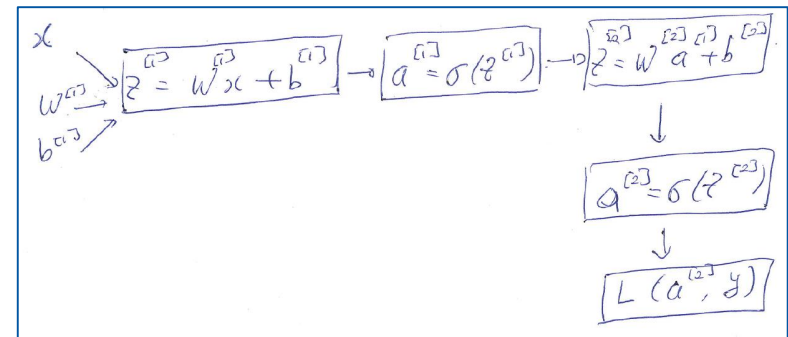 x
w^[1]
b^[1]
z^[1] = w^[1]x + b^[1]
a^[1] = σ(z^[1])
z^[2] = w^[2] a^[1] + b^[2]
a^[2] = σ(z^[2])
L (a^[2], y)